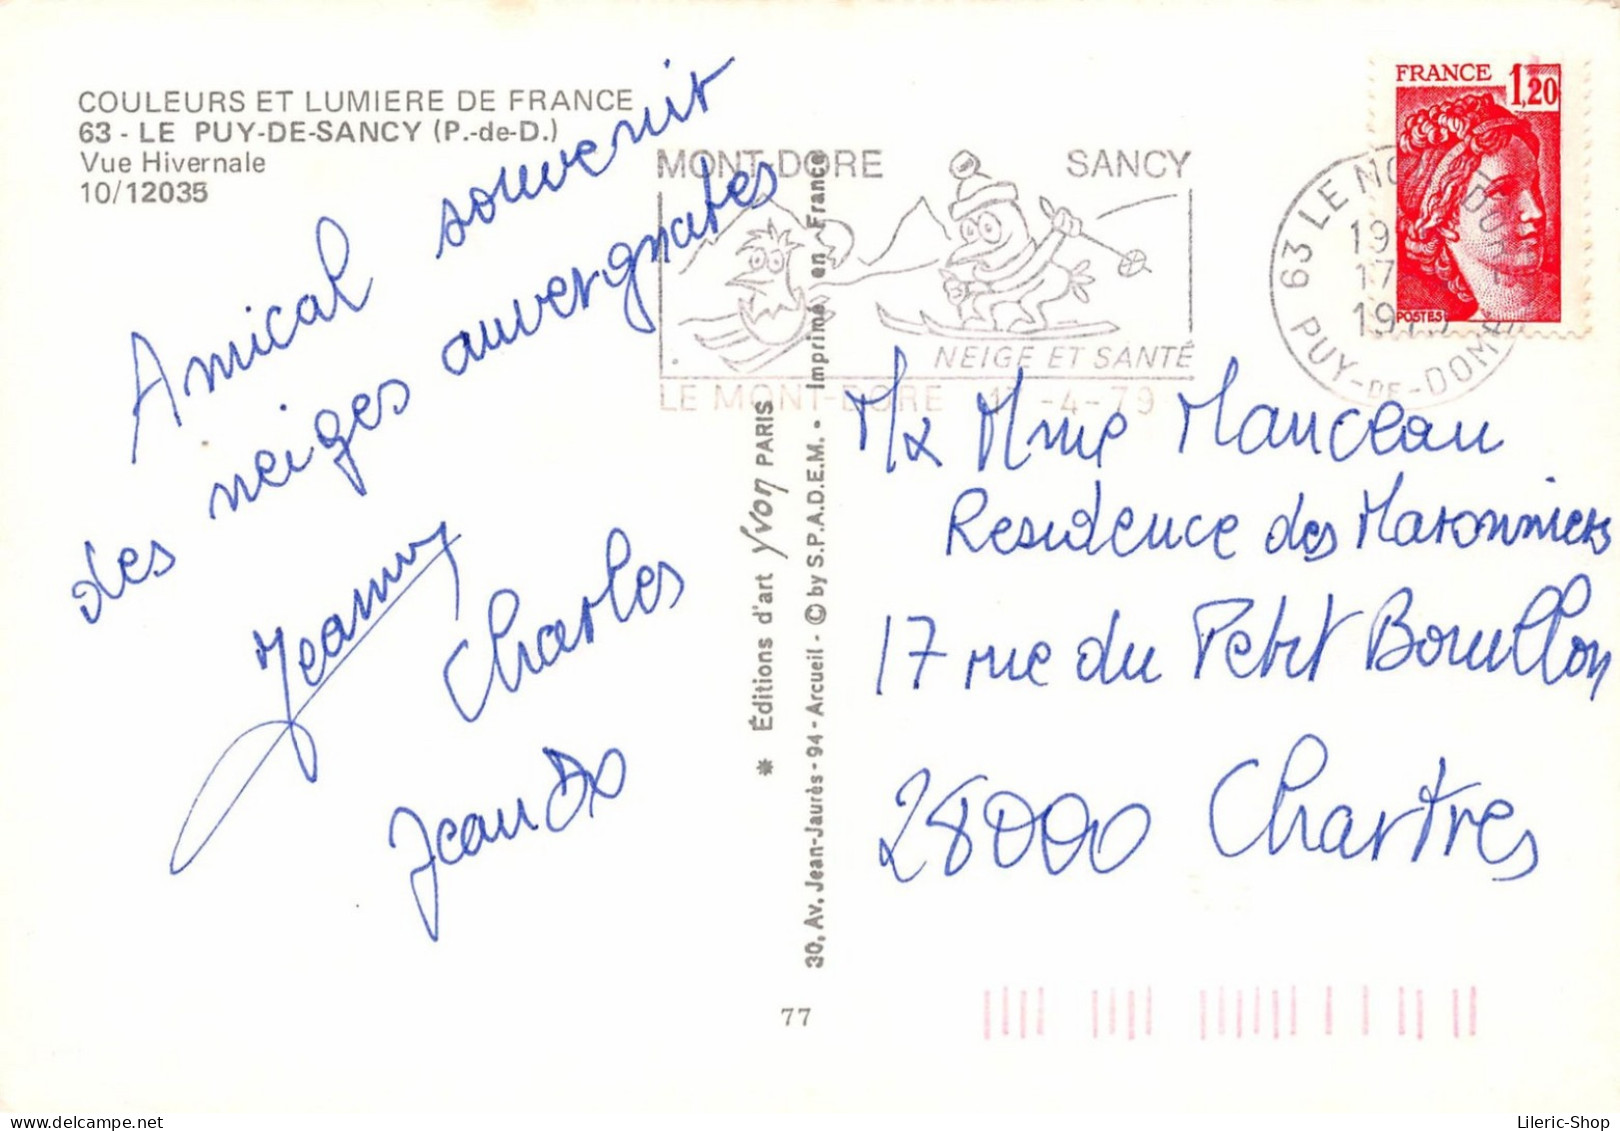 COULEURS ET LUMIERE DE FRANCE
63 - LE PUY-DE-SANCY (P.-de-D.)
Vue Hivernale
10/12035
Amical souvenir
des neiges auvergnates
Jeanny
Charles
MONT-DORE SANCY
NEIGE ET SANTÉ
LE MONT-DORE 17-4-79
63 LE MONT DORE
PUY-DE-DOME
FRANCE 1,20
POSTES
✳ Éditions d'art Yvon PARIS
30, Av. Jean-Jaurès - 94 - Arcueil - © by S.P.A.D.E.M. - Imprimé en France
M/x Mme Manceau
Residence des Maronniers
17 rue du Petit Bouillon
28000 Chartres
77
Lileric-Shop